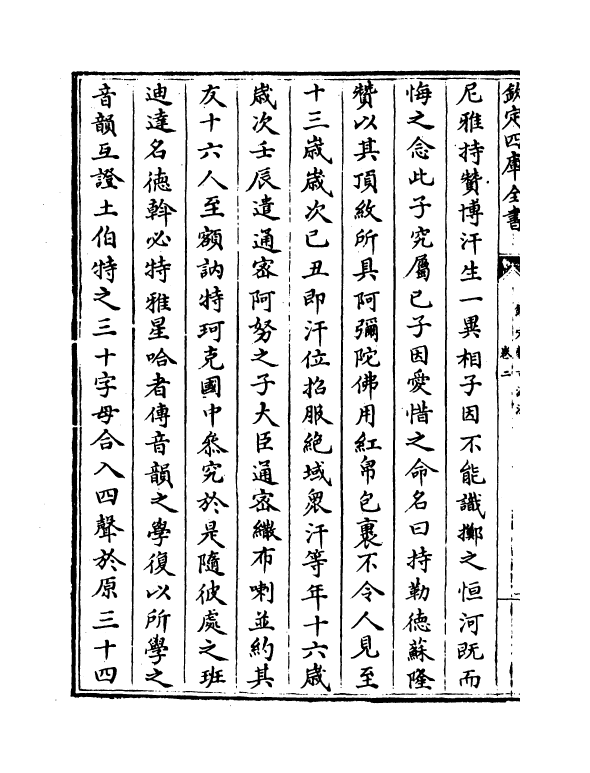 欽定四庫全書
卷二
尼雅持贊博汗生一異相子因不能識擲之恒河既而
悔之念此子究屬已子因愛惜之命名曰持勒德蘇隆
贊以其頂紋所具阿彌陀佛用紅帛包裹不令人見至
十三歲歲次已丑即汗位招服絶域衆汗等年十六歲
歲次壬辰遣通密阿努之子大臣通密纖布喇並約其
友十六人至額訥特珂克國中叅究於是隨彼處之班
迪達名德斡必特雅星哈者傳音韻之學復以所學之
音韻互證土伯特之三十字母合入四聲於原三十四